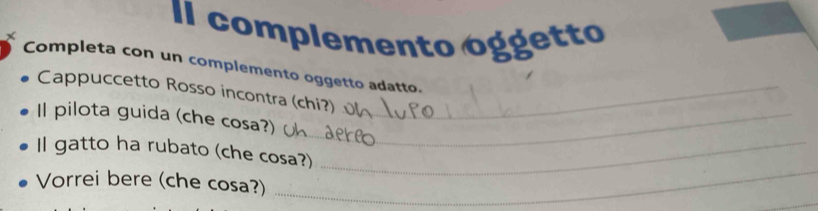 Il complemento oggetto
Completa con un complemento oggetto adatto.
• Cappuccetto Rosso incontra (chi?) un lupo
• Il pilota guida (che cosa?) un aereo
• Il gatto ha rubato (che cosa?)
• Vorrei bere (che cosa?)